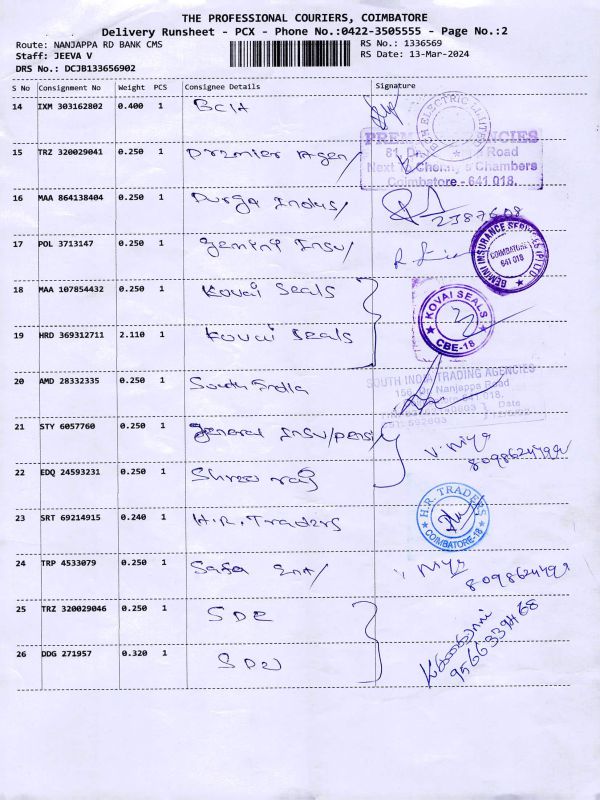 THE PROFESSIONAL COURIERS, COIMBATORE
Delivery Runsheet - PCX - Phone No.:0422-3505555 - Page No.:2
Route: NANJAPPA RD BANK CMS RS No.: 1336569
Staff: JEEVA V RS Date: 13-Mar-2024
DRS No.: DCJB133656902
S No Consignment No Weight PCS Consignee Details Signature
14 IXM 303162802 0.400 1
ELECTRIC
15 TRZ 320029041 0.250 1 Premier Agen/
AGENCIES
Road
Chambers
Coimbatore - 641 018.
16 MAA 864138404 0.250 1 Durga Indus/
17 POL 3713147 0.250 1 Gemini Insu/
GEMINI INSURANCE SERVICES (P) LTD
COIMBATORE
641 018
18 MAA 107854432 0.250 1 Kovai Seals
19 HRD 369312711 2.110 1 Kovai Seals
KOVAI SEALS
CBE-18
20 AMD 28332335 0.250 1 South India
SOUTH INDIA TRADING AGENCIES
Nanjappa Road
Date
21 STY 6057760 0.250 1 General Insu/pensi
8098624799
22 EDQ 24593231 0.250 1 Shree raj
23 SRT 69214915 0.240 1 H.R. Traders
H.R. TRADERS
COIMBATORE-18
24 TRP 4533079 0.250 1 Safa Ent/
8098624799
25 TRZ 320029046 0.250 1 SDE
26 DDG 271957 0.320 1
9566339468